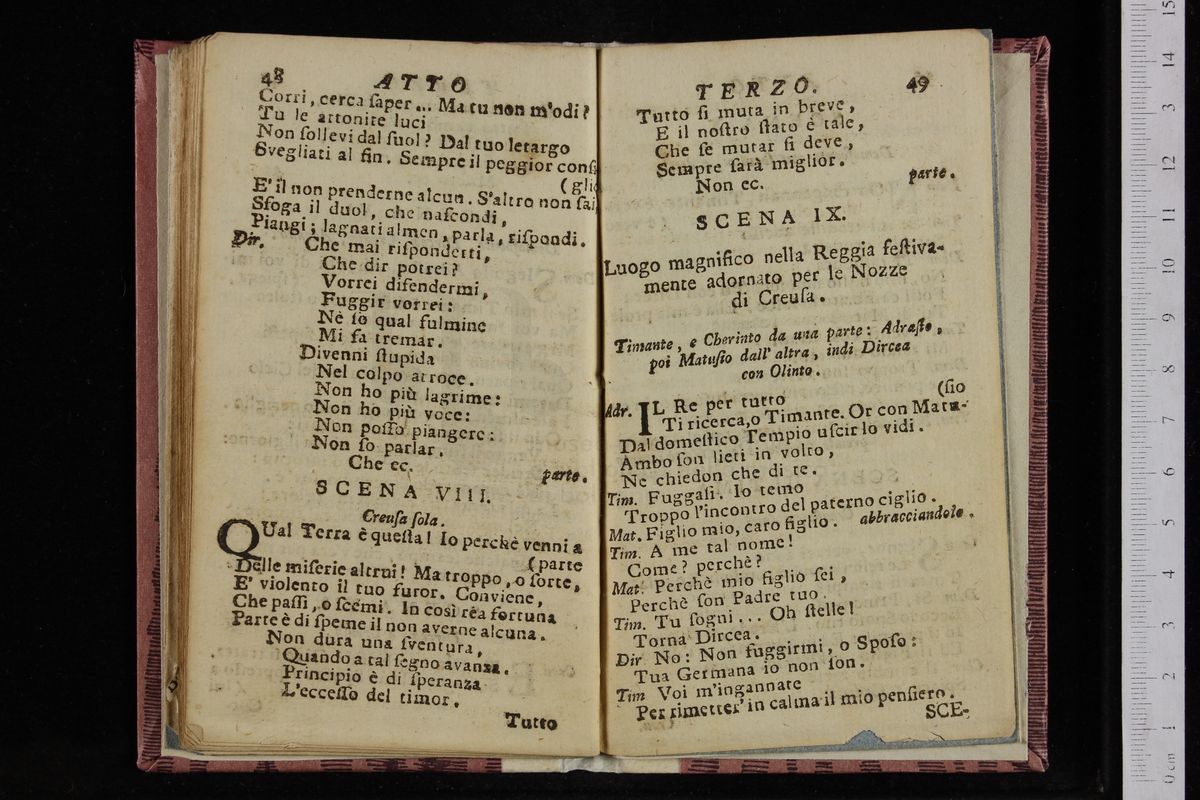 48 ATTO
Corri, cerca ſaper... Ma tu non m'odi?
Tu le attonite luci
Non ſollevi dal ſuol? Dal tuo letargo
Svegliati al fin. Sempre il peggior conſi
(glio
E' il non prenderne alcun. S'altro non ſai
Sfoga il duol, che naſcondi,
Piangi; lagnati almen, parla, riſpondi.
Dir. Che mai riſponderti,
Che dir potrei?
Vorrei difendermi,
Fuggir vorrei:
Nè ſo qual fulmine
Mi fa tremar.
Divenni ſtupida
Nel colpo atroce.
Non ho più lagrime:
Non ho più voce:
Non poſſo piangere:
Non ſo parlar.
Che ec. parte.
SCENA VIII.
Creuſa ſola.
QUal Terra è queſta! Io perchè venni a
(parte
Delle miſerie altrui! Ma troppo, o ſorte,
E' violento il tuo furor. Conviene,
Che paſſi, o ſcemi. In così rea fortuna
Parte è di ſpeme il non averne alcuna.
Non dura una ſventura,
Quando a tal ſegno avanza.
Principio è di ſperanza
L'ecceſſo del timor.
Tutto
TERZO. 49
Tutto ſi muta in breve,
E il noſtro ſtato è tale,
Che ſe mutar ſi deve,
Sempre ſarà miglior.
Non ec. parte.
SCENA IX.
Luogo magnifico nella Reggia feſtiva-
mente adornato per le Nozze
di Creuſa.
Timante, e Cherinto da una parte: Adraſto,
poi Matuſio dall' altra, indi Dircea
con Olinto.
Adr. IL Re per tutto (ſio
Ti ricerca, o Timante. Or con Matu-
Dal domeſtico Tempio uſcir lo vidi.
Ambo ſon lieti in volto,
Ne chiedon che di te.
Tim. Fuggaſi. Io temo
Troppo l'incontro del paterno ciglio.
Mat. Figlio mio, caro figlio. abbracciandolo.
Tim. A me tal nome!
Come? perchè?
Mat. Perchè mio figlio ſei,
Perchè ſon Padre tuo.
Tim. Tu ſogni... Oh ſtelle!
Torna Dircea.
Dir No: Non fuggirmi, o Spoſo:
Tua Germana io non ſon.
Tim Voi m'ingannate
Per rimetter' in calma il mio penſiero.
SCE-
0 cm 1 2 3 4 5 6 7 8 9 10 11 12 13 14 15